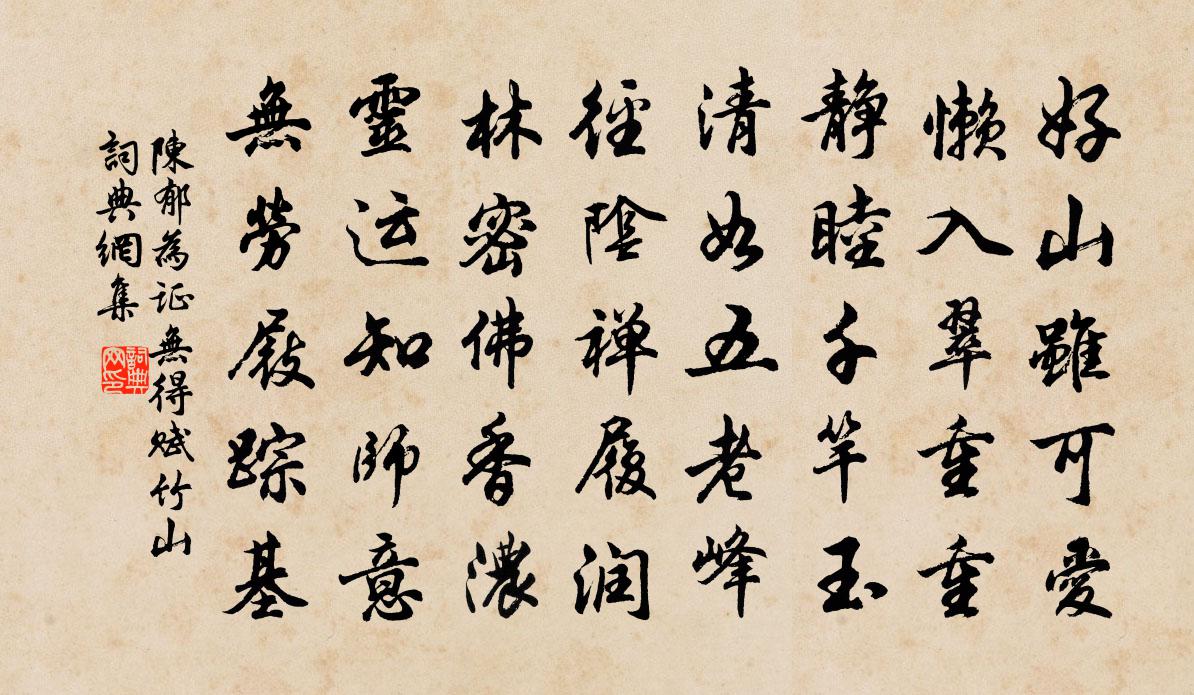 好山雖可愛
懶入翠重重
靜睦千竿玉
清如五老峰
徑陰禅履润
林密佛香濃
靈运知師意
無勞屐踪基
陳郁為证無得赋竹山
詞典網集
詞典网印